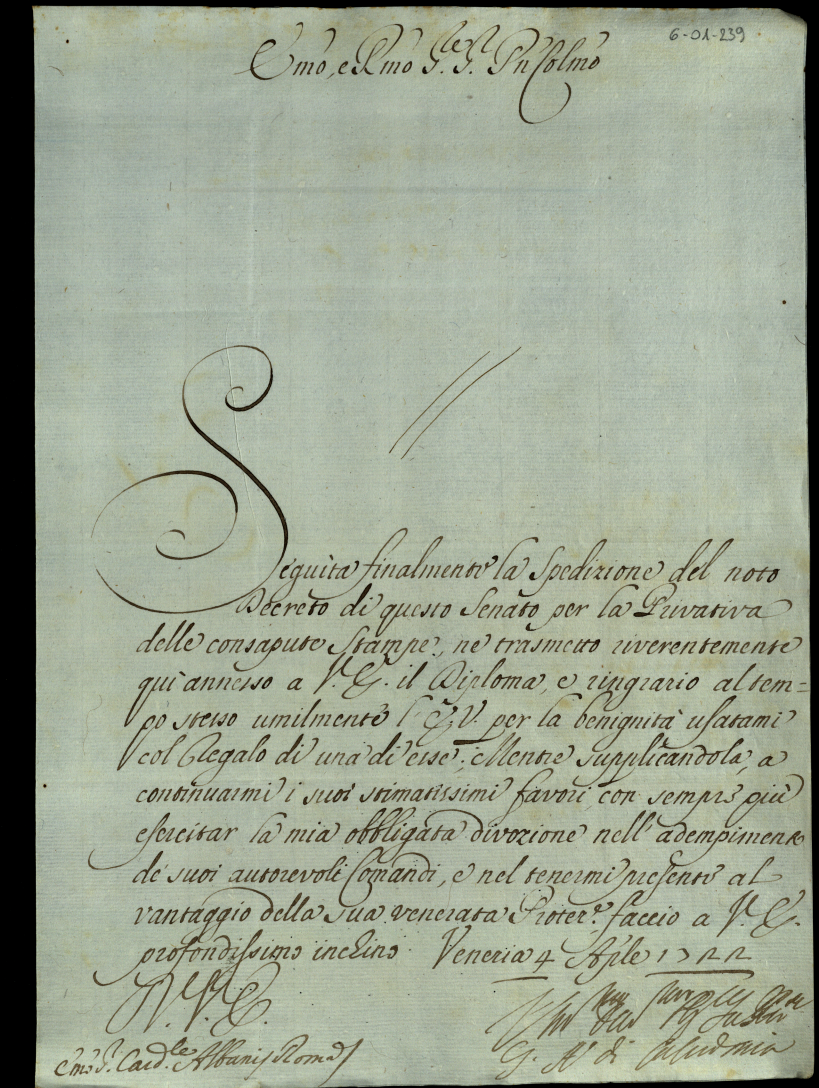 6-01-239
Emo, e Rmo Sre. Sr. Pn Colmo
Seguita finalmente la Spedizione del noto
Decreto di questo Senato per la Privativa
delle consapute Stampe, ne trasmetto riverentemente
quì annesso a V. E. il Diploma, e ringrazio al tem=
po stesso umilmente l'E. V. per la benignità usatami
col Regalo di una di esse; Mentre supplicandola, a
continuarmi i suoi stimatissimi favori, con sempre più
esercitar la mia obbligata divozione nell'adempimento
de' suoi autorevoli Comandi, e nel tenermi presente al
vantaggio della sua venerata Protez.e, faccio a V. E.
profondissimo inchino. Venezia 4 Aple 1722
Di V. E.
di
Emo Sr. Card.le Albani Roma